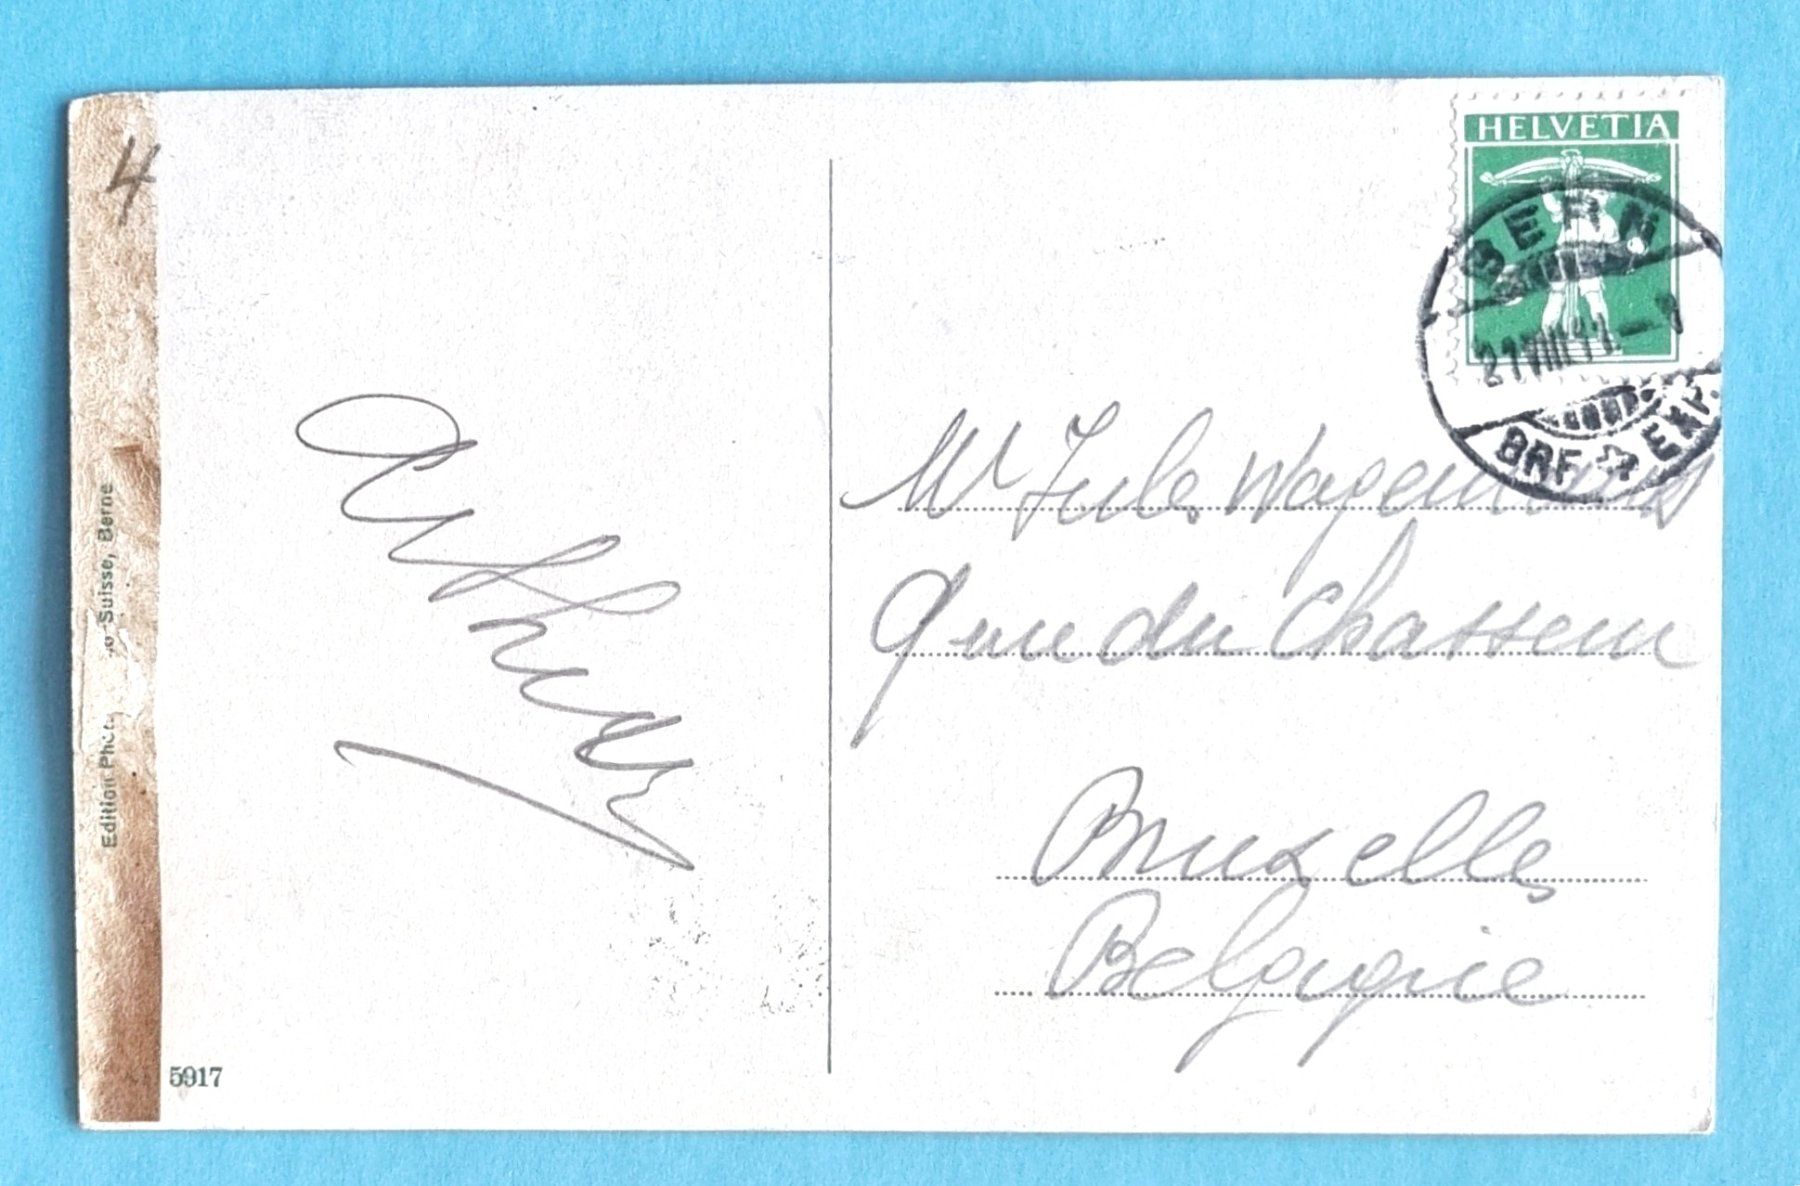 4
Edition Pho Suisse, Berne
5917
Arthur
HELVETIA
BERN
21 VIII 11 – 8
BRF. EXP.
Mr Jules Wagemans
9 rue du Chasseur
Bruxelles
Belgique